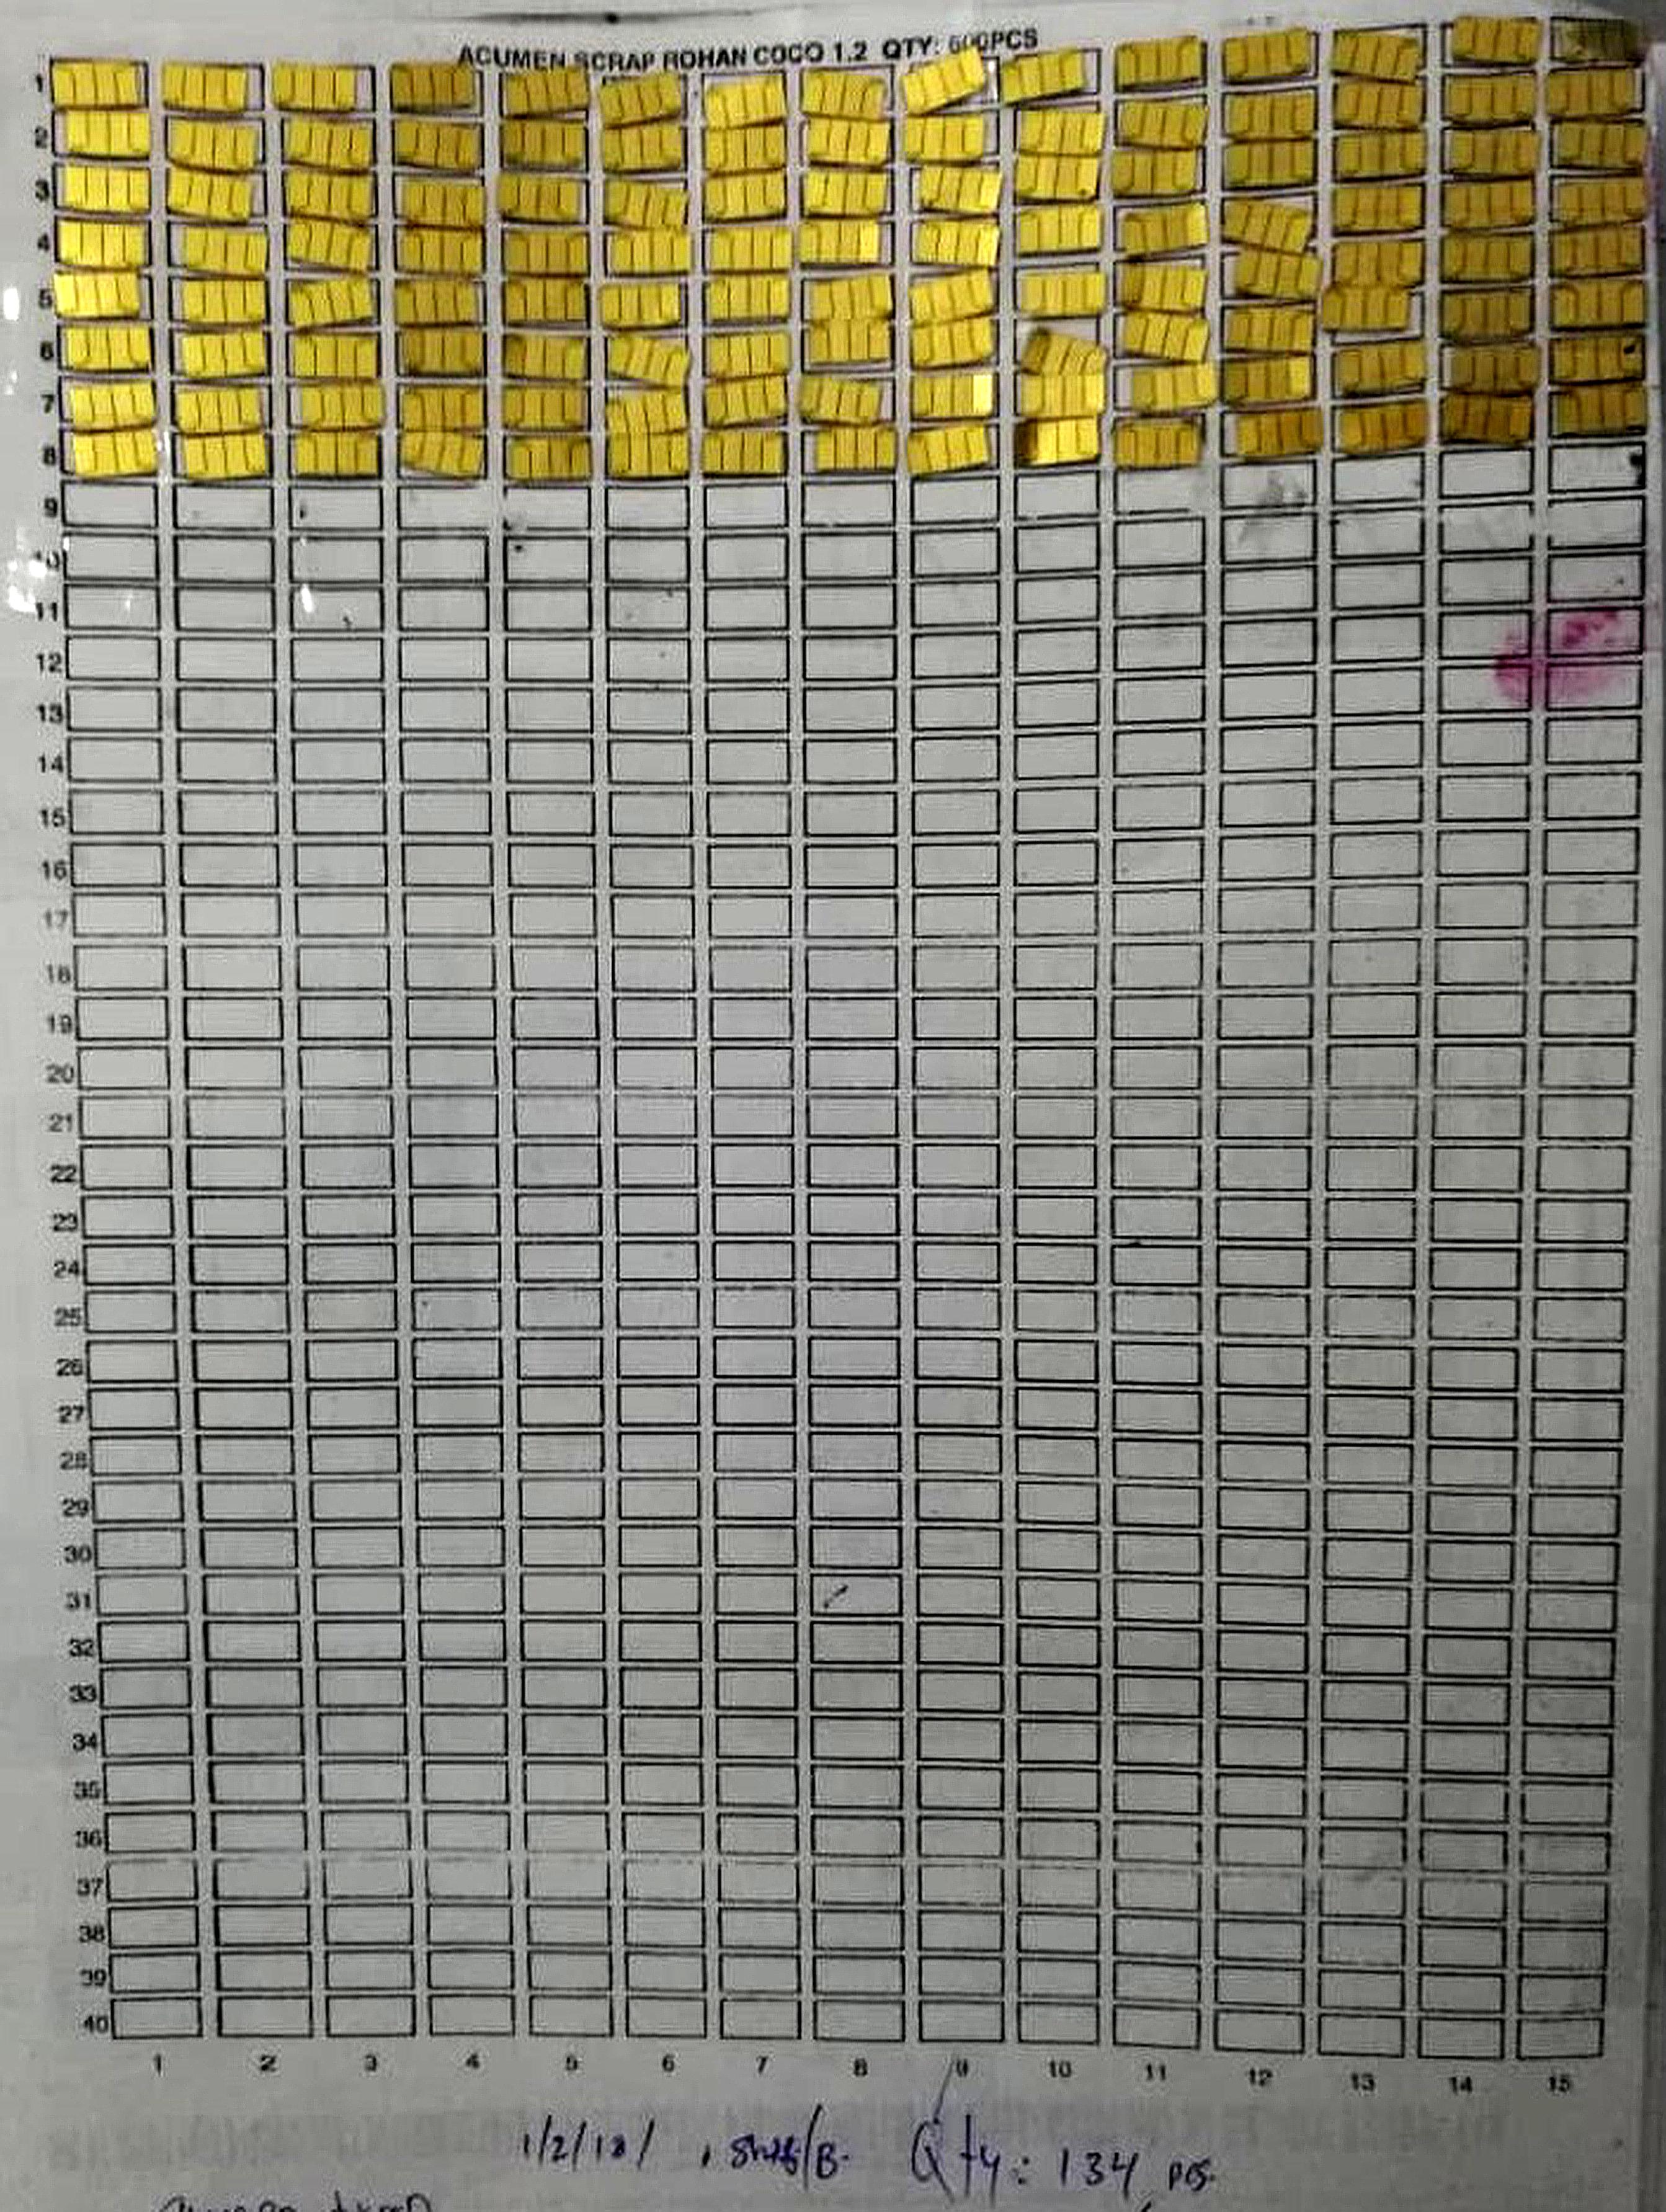 ACUMEN SCRAP ROHAN COCO 1.2 QTY: 600PCS
1
2
3
4
5
6
7
8
9
10
11
12
13
14
15
16
17
18
19
20
21
22
23
24
25
26
27
28
29
30
31
32
33
34
35
36
37
38
39
40
1 2 3 4 5 6 7 8 9 10 11 12 13 14 15
1/2/18/ , Shift/B. Qty: 134 pcs.